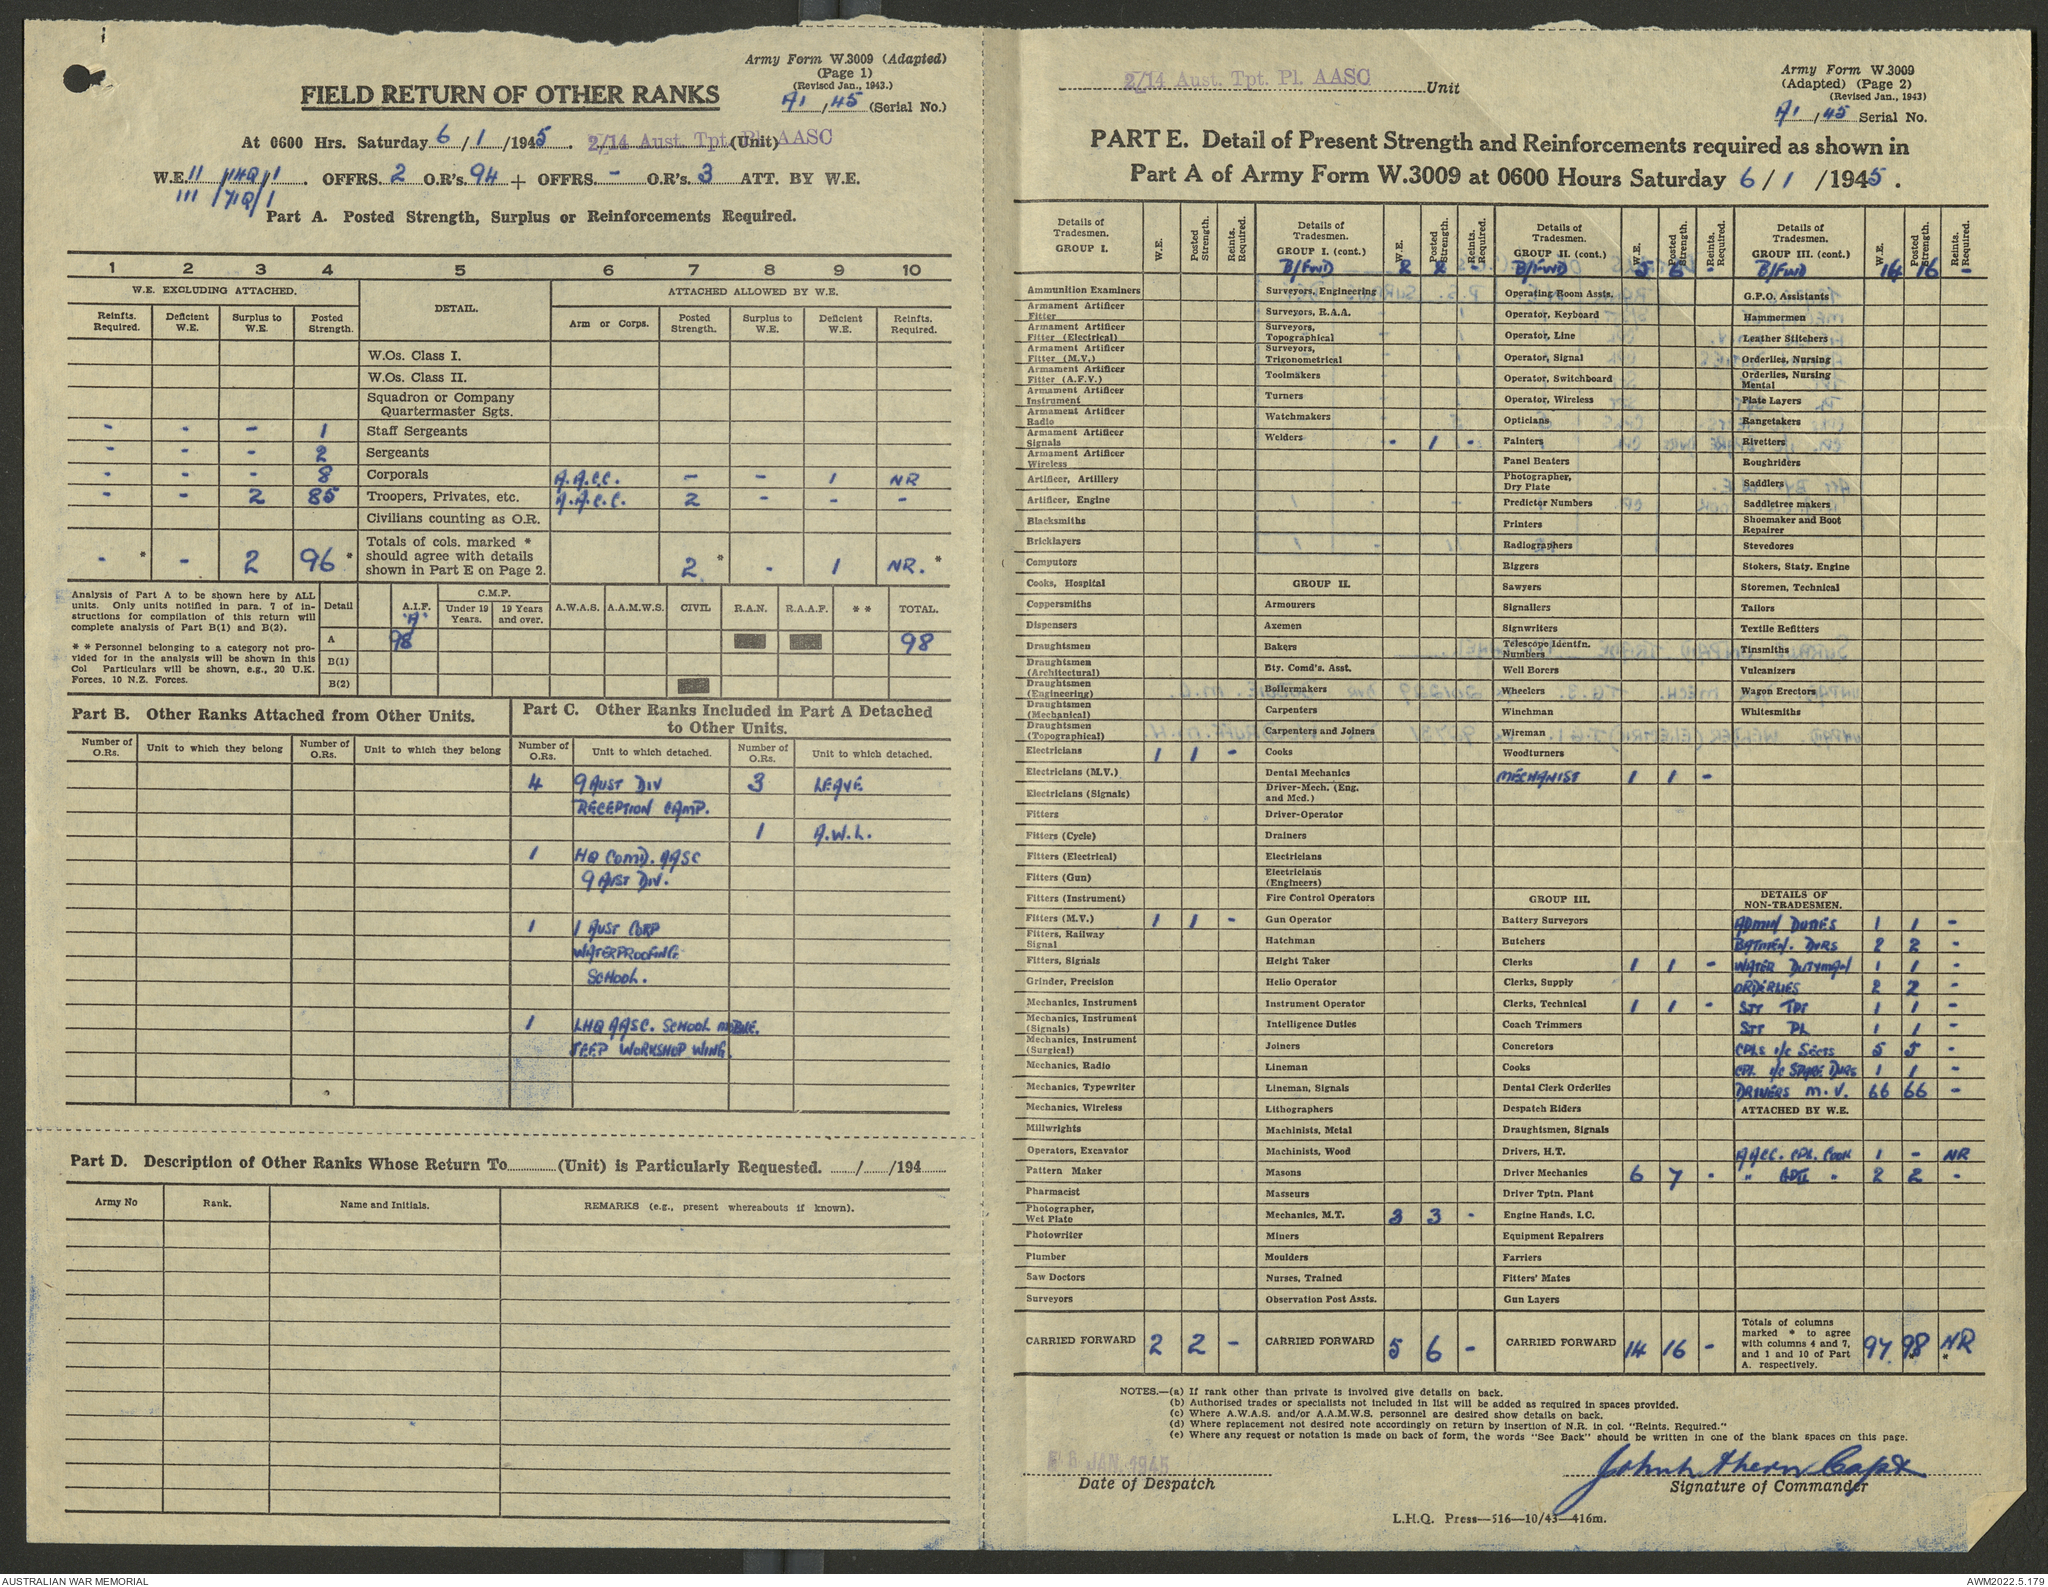 Army Form W.3009 (Adapted)
(Page 1)
(Revised Jan., 1943.)
FIELD RETURN OF OTHER RANKS
A1/45 (Serial No.)
At 0600 Hrs. Saturday 6/1/1945. 2/14 Aust. Tpt. Pl. AASC (Unit)
W.E. II /14Q/1. OFFRS. 2 O.R's. 94 + OFFRS. - O.R's. 3 ATT. BY W.E.
III /71Q/1
Part A. Posted Strength, Surplus or Reinforcements Required.
1 2 3 4 5 6 7 8 9 10
W.E. EXCLUDING ATTACHED. DETAIL. ATTACHED ALLOWED BY W.E.
Reinfts. Required. Deficient W.E. Surplus to W.E. Posted Strength. Arm or Corps. Posted Strength. Surplus to W.E. Deficient W.E. Reinfts. Required.
W.Os. Class I.
W.Os. Class II.
Squadron or Company
Quartermaster Sgts.
- - - 1 Staff Sergeants
- - - 2 Sergeants
- - - 8 Corporals A.A.C.C. - - 1 NR
- - 2 85 Troopers, Privates, etc. A.A.C.C. 2 - - -
Civilians counting as O.R.
Totals of cols. marked *
should agree with details
shown in Part E on Page 2.
- * - 2 96 * 2 * - 1 NR. *
Analysis of Part A to be shown here by ALL
units. Only units notified in para. 7 of in-
structions for compilation of this return will
complete analysis of Part B(1) and B(2).
* * Personnel belonging to a category not pro-
vided for in the analysis will be shown in this
Col Particulars will be shown, e.g., 20 U.K.
Forces, 10 N.Z. Forces.
Detail A.I.F. 'A' C.M.F. Under 19 Years. 19 Years and over. A.W.A.S. A.A.M.W.S. CIVIL R.A.N. R.A.A.F. * * TOTAL.
A 98 98
B(1)
B(2)
Part B. Other Ranks Attached from Other Units.
Number of O.Rs. Unit to which they belong Number of O.Rs. Unit to which they belong
Part C. Other Ranks Included in Part A Detached
to Other Units.
Number of O.Rs. Unit to which detached. Number of O.Rs. Unit to which detached.
4 9 AUST DIV 3 LEAVE
RECEPTION CAMP.
1 A.W.L.
1 HQ COMD. AASC
9 AUST DIV.
1 1 AUST CORP
WATERPROOFING
SCHOOL.
1 LHQ AASC. SCHOOL MOBILE.
JEEP WORKSHOP WING.
Part D. Description of Other Ranks Whose Return To (Unit) is Particularly Requested. / /194
Army No Rank. Name and Initials. REMARKS (e.g., present whereabouts if known).
2/14 Aust. Tpt. Pl. AASC Unit
Army Form W.3009
(Adapted) (Page 2)
(Revised Jan., 1943)
A1/45 Serial No.
PART E. Detail of Present Strength and Reinforcements required as shown in
Part A of Army Form W.3009 at 0600 Hours Saturday 6/1/1945.
Details of Tradesmen. GROUP I. W.E. Posted Strength. Reints. Required.
Ammunition Examiners
Armament Artificer Fitter
Armament Artificer Fitter (Electrical)
Armament Artificer Fitter (M.V.)
Armament Artificer Fitter (A.F.V.)
Armament Artificer Instrument
Armament Artificer Radio
Armament Artificer Signals
Armament Artificer Wireless
Artificer, Artillery
Artificer, Engine
Blacksmiths
Bricklayers
Computors
Cooks, Hospital
Coppersmiths
Dispensers
Draughtsmen
Draughtsmen (Architectural)
Draughtsmen (Engineering)
Draughtsmen (Mechanical)
Draughtsmen (Topographical)
Electricians 1 1 -
Electricians (M.V.)
Electricians (Signals)
Fitters
Fitters (Cycle)
Fitters (Electrical)
Fitters (Gun)
Fitters (Instrument)
Fitters (M.V.) 1 1 -
Fitters, Railway Signal
Fitters, Signals
Grinder, Precision
Mechanics, Instrument
Mechanics, Instrument (Signals)
Mechanics, Instrument (Surgical)
Mechanics, Radio
Mechanics, Typewriter
Mechanics, Wireless
Millwrights
Operators, Excavator
Pattern Maker
Pharmacist
Photographer, Wet Plate
Photowriter
Plumber
Saw Doctors
Surveyors
CARRIED FORWARD 2 2 -
Details of Tradesmen. GROUP I. (cont.) W.E. Posted Strength. Reints. Required.
B/FWD 2 2 -
Surveyors, Engineering
Surveyors, R.A.A.
Surveyors, Topographical
Surveyors, Trigonometrical
Toolmakers
Turners
Watchmakers
Welders - 1 -
GROUP II.
Armourers
Axemen
Bakers
Bty. Comd's. Asst.
Boilermakers
Carpenters
Carpenters and Joiners
Cooks
Dental Mechanics
Driver-Mech. (Eng. and Med.)
Driver-Operator
Drainers
Electricians
Electricians (Engineers)
Fire Control Operators
Gun Operator
Hatchman
Height Taker
Helio Operator
Instrument Operator
Intelligence Duties
Joiners
Lineman
Lineman, Signals
Lithographers
Machinists, Metal
Machinists, Wood
Masons
Masseurs
Mechanics, M.T. 3 3 -
Miners
Moulders
Nurses, Trained
Observation Post Assts.
CARRIED FORWARD 5 6 -
Details of Tradesmen. GROUP II. (cont.) W.E. Posted Strength. Reints. Required.
B/FWD 5 6 -
Operating Room Assts.
Operator, Keyboard
Operator, Line
Operator, Signal
Operator, Switchboard
Operator, Wireless
Opticians
Painters
Panel Beaters
Photographer, Dry Plate
Predictor Numbers
Printers
Radiographers
Riggers
Sawyers
Signallers
Signwriters
Telescope Identfn. Numbers
Well Borers
Wheelers
Winchman
Wireman
Woodturners
MECHANIST 1 1 -
GROUP III.
Battery Surveyors
Butchers
Clerks 1 1 -
Clerks, Supply
Clerks, Technical 1 1 -
Coach Trimmers
Concretors
Cooks
Dental Clerk Orderlies
Despatch Riders
Draughtsmen, Signals
Drivers, H.T.
Driver Mechanics 6 7 -
Driver Tptn. Plant
Engine Hands, I.C.
Equipment Repairers
Farriers
Fitters' Mates
Gun Layers
CARRIED FORWARD 14 16 -
Details of Tradesmen. GROUP III. (cont.) W.E. Posted Strength. Reints. Required.
B/FWD 14 16 -
G.P.O. Assistants
Hammermen
Leather Stitchers
Orderlies, Nursing
Orderlies, Nursing Mental
Plate Layers
Rangetakers
Rivetters
Roughriders
Saddlers
Saddletree makers
Shoemaker and Boot Repairer
Stevedores
Stokers, Staty. Engine
Storemen, Technical
Tailors
Textile Refitters
Tinsmiths
Vulcanizers
Wagon Erectors
Whitesmiths
DETAILS OF
NON-TRADESMEN.
ADMIN DUTIES 1 1 -
BATMEN. DVRS 2 2 -
WATER DUTYMAN 1 1 -
ORDERLIES 2 2 -
SJT TPT 1 1 -
SJT PL 1 1 -
CPLS i/c SECTS 5 5 -
CPL i/c SPARE DVRS 1 1 -
DRIVERS M.V. 66 66 -
ATTACHED BY W.E.
AACC. CPL. COOK 1 - NR
" " 2 2 -
Totals of columns
marked * to agree
with columns 4 and 7,
and 1 and 10 of Part
A. respectively.
97 98 * NR *
NOTES.—(a) If rank other than private is involved give details on back.
(b) Authorised trades or specialists not included in list will be added as required in spaces provided.
(c) Where A.W.A.S. and/or A.A.M.W.S. personnel are desired show details on back.
(d) Where replacement not desired note accordingly on return by insertion of N.R. in col. "Reints. Required."
(e) Where any request or notation is made on back of form, the words "See Back" should be written in one of the blank spaces on this page.
6 JAN 1945
Date of Despatch
Capt
Signature of Commander
L.H.Q. Press—516—10/43—416m.
AUSTRALIAN WAR MEMORIAL
AWM2022.5.179